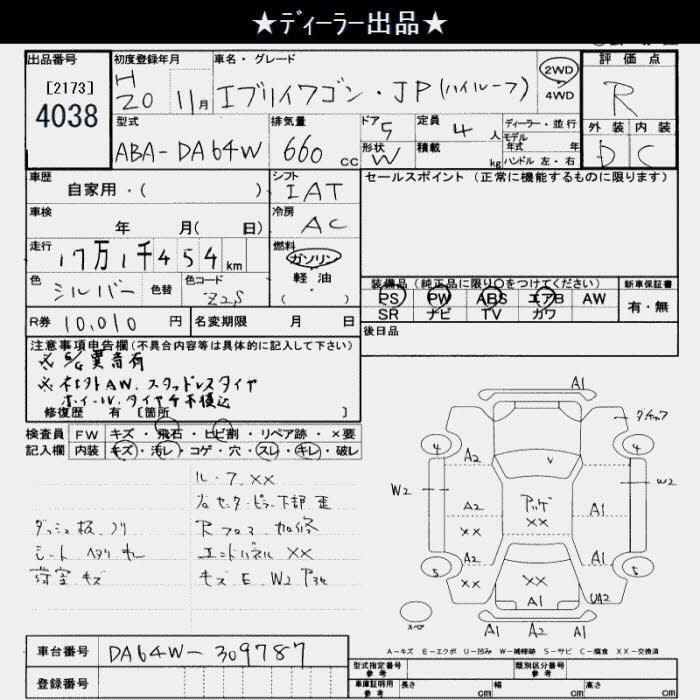 ★ディーラー出品★
出品番号
[2173]
4038
初度登録年月
H
20 11月
車名・グレード
エブリイワゴン・JP(ハイルーフ)
2WD
4WD
評価点
R
外装 内装
D C
型式
ABA-DA64W
排気量
660 cc
ドア 5
形状 W
定員 4 人
積載 kg
ディーラー・並行
モデル
年式 年
ハンドル 左・右
車歴
自家用・( )
シフト
IAT
セールスポイント(正常に機能するものに限ります)
車検
年 月( 日)
冷房
AC
走行
17万1千454km
燃料
ガソリン
軽油
( ・ )
色
シルバー
色替
色コード
Z2S
装備品(純正品に限り○をつけてください)
新車保証書
PS PW ABS エアB AW
SR ナビ TV カワ
有・無
R券 10,010 円
名変期限 月 日
後日品
注意事項申告欄(不具合内容等は具体的に記入して下さい)
異音有
AW. スタッドレスタイヤ
ホイール、タイヤ
修復歴 有 [箇所 ]
検査員 FW キズ・飛石・ヒビ割・リペア跡・×要
記入欄 内装 キズ・汚レ・コゲ・穴・スレ・キレ・破レ
ルーフ XX
センターピラー下部 歪
ダッシュ板、ノリ
Rフロア 加修
シート ヘタリ
エンドパネル XX
荷室 キズ
キズ E W2
A1
4 4
A2
W2 W2
A2 XX
XX
A1
A2 XX
XX
A1
5 5
A1
UA2
スペア
A1 A2 A1
A-キズ E-エクボ U-凹み W-補修跡 S-サビ C-腐食 XX-交換済
車台番号 DA64W-309787
登録番号
型式指定番号
参考
類別区分番号
参考
車庫証明用
参考
長さ cm 幅 cm 高さ cm